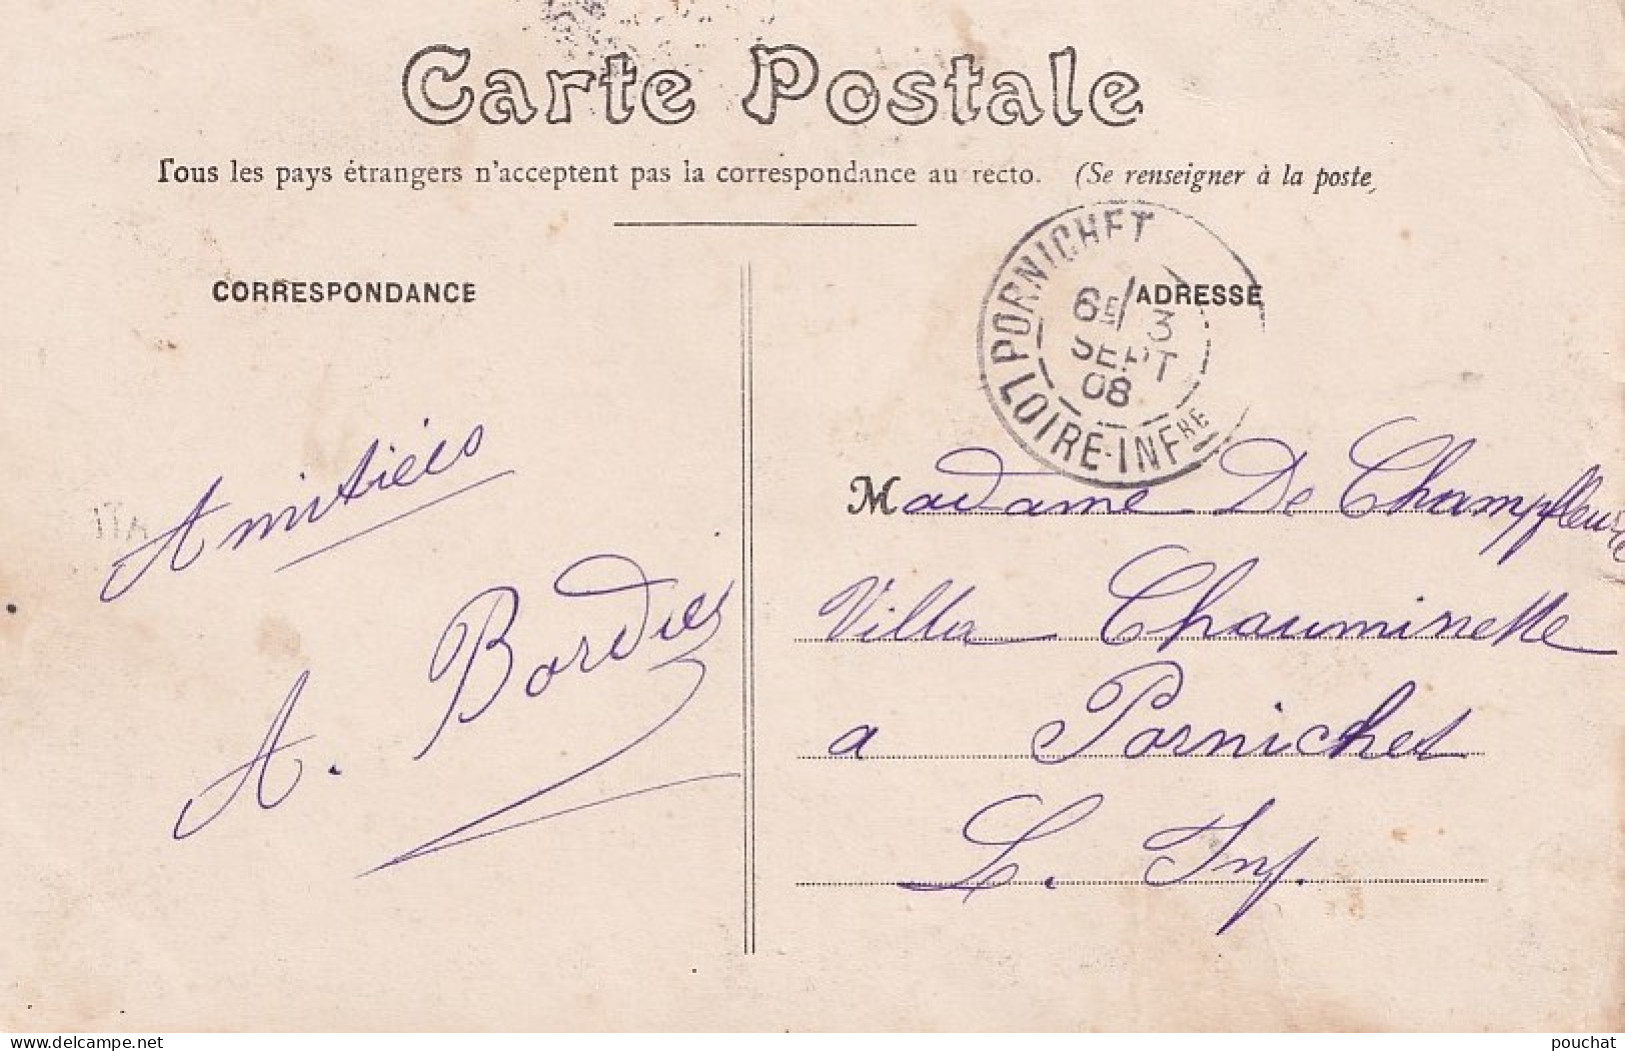 Carte Postale
Tous les pays étrangers n'acceptent pas la correspondance au recto. (Se renseigner à la poste,
CORRESPONDANCE
ADRESSE
PORNICHET
6E/3
SEPT
08
LOIRE-INFRE
Amitiées
A. Bordies
ITA
Madame De Champfleury
Villa Chauminette
a Pornichet
L. Inf.
delcampe.net
pouchat